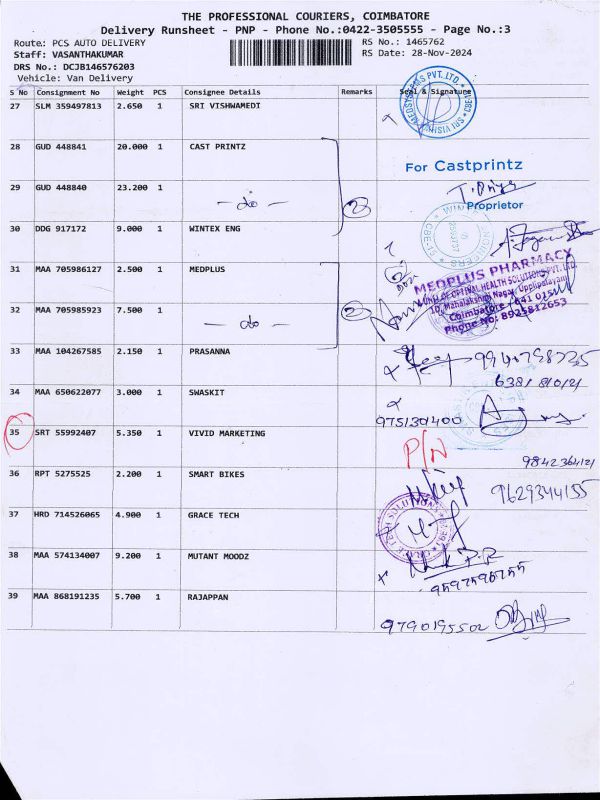 THE PROFESSIONAL COURIERS, COIMBATORE
Delivery Runsheet - PNP - Phone No.:0422-3505555 - Page No.:3
Route: PCS AUTO DELIVERY RS No.: 1465762
Staff: VASANTHAKUMAR RS Date: 28-Nov-2024
DRS No.: DCJB146576203
Vehicle: Van Delivery
S No Consignment No Weight PCS Consignee Details Remarks Seal & Signature
27 SLM 359497813 2.650 1 SRI VISHWAMEDI
28 GUD 448841 20.000 1 CAST PRINTZ
For Castprintz
29 GUD 448840 23.200 1 - do - 2
Proprietor
30 DDG 917172 9.000 1 WINTEX ENG
31 MAA 705986127 2.500 1 MEDPLUS
MEDPLUS PHARMACY
UNIT OF OPTIVAL HEALTH SOLUTIONS PVT. LTD.
10, Mahalakshmi Nagar, Uppilipalayam
Coimbatore - 641 015
Phone No: 8925812653
32 MAA 705985923 7.500 1 - do - 2
33 MAA 104267585 2.150 1 PRASANNA
34 MAA 650622077 3.000 1 SWASKIT
9751301400
35 SRT 55992407 5.350 1 VIVID MARKETING P/N
9842364121
36 RPT 5275525 2.200 1 SMART BIKES 9629344155
37 HRD 714526065 4.900 1 GRACE TECH
38 MAA 574134007 9.200 1 MUTANT MOODZ
39 MAA 868191235 5.700 1 RAJAPPAN
9790195502